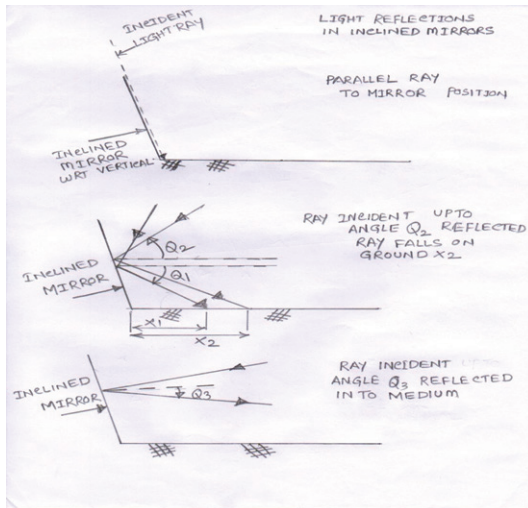 INCIDENT
LIGHT RAY
LIGHT REFLECTIONS
IN INCLINED MIRRORS
PARALLEL RAY
TO MIRROR POSITION
INCLINED
MIRROR
WRT VERTICAL
RAY INCIDENT UPTO
ANGLE Q2 REFLECTED
RAY FALLS ON
GROUND X2
Q2
Q1
INCLINED
MIRROR
X1
X2
RAY INCIDENT UPTO
ANGLE Q3 REFLECTED
IN TO MEDIUM
INCLINED
MIRROR
Q3